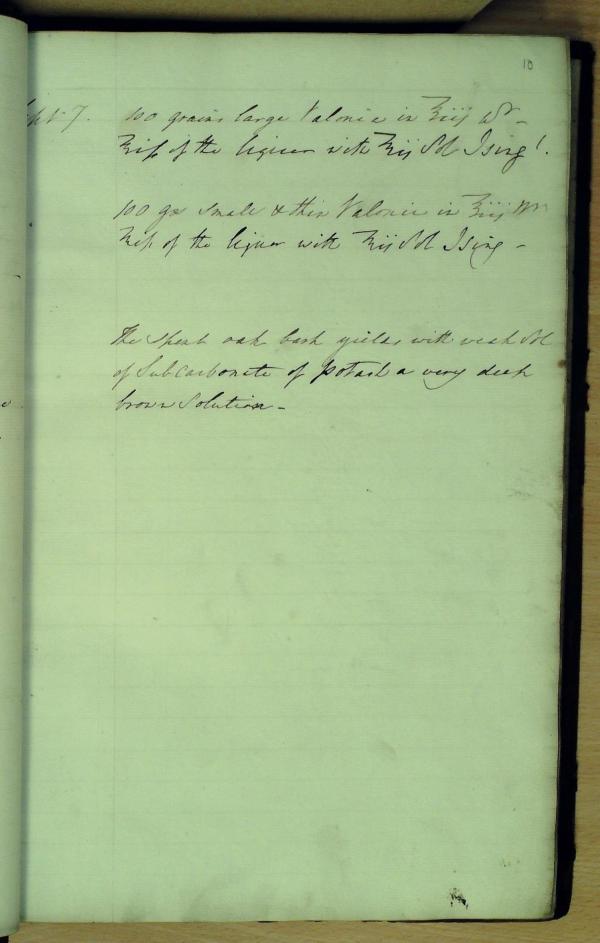 10
Sept 7. 100 grains large Valonia in ℥iij Wr –
℥iſs of the liquor with ℥ij Sol Isingl.
100 gr small & thin Valonia in ℥iij Wr
℥iſs of the liquor with ℥ij Sol Ising –
The spent oak bark yields with weak Sol
of Subcarbonate of potash a very deep
brown Solution –